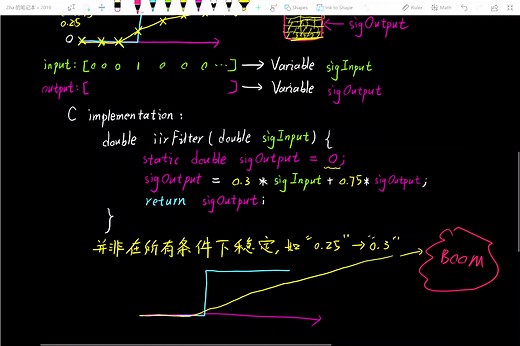 Zhe 的笔记本 » 2019
Shapes
Ink to Shape
Ruler
Math
0.25
0
sigOutput
input: [ 0 0 0 1 0 0 0 ...] → Variable sigInput
output: [ ] → Variable sigOutput
C implementation:
double iirFilter(double sigInput) {
static double sigOutput = 0;
sigOutput = 0.3 * sigInput + 0.75* sigOutput;
return sigOutput;
}
并非在所有条件下稳定, 如 "0.25" → "0.3"
BOOM